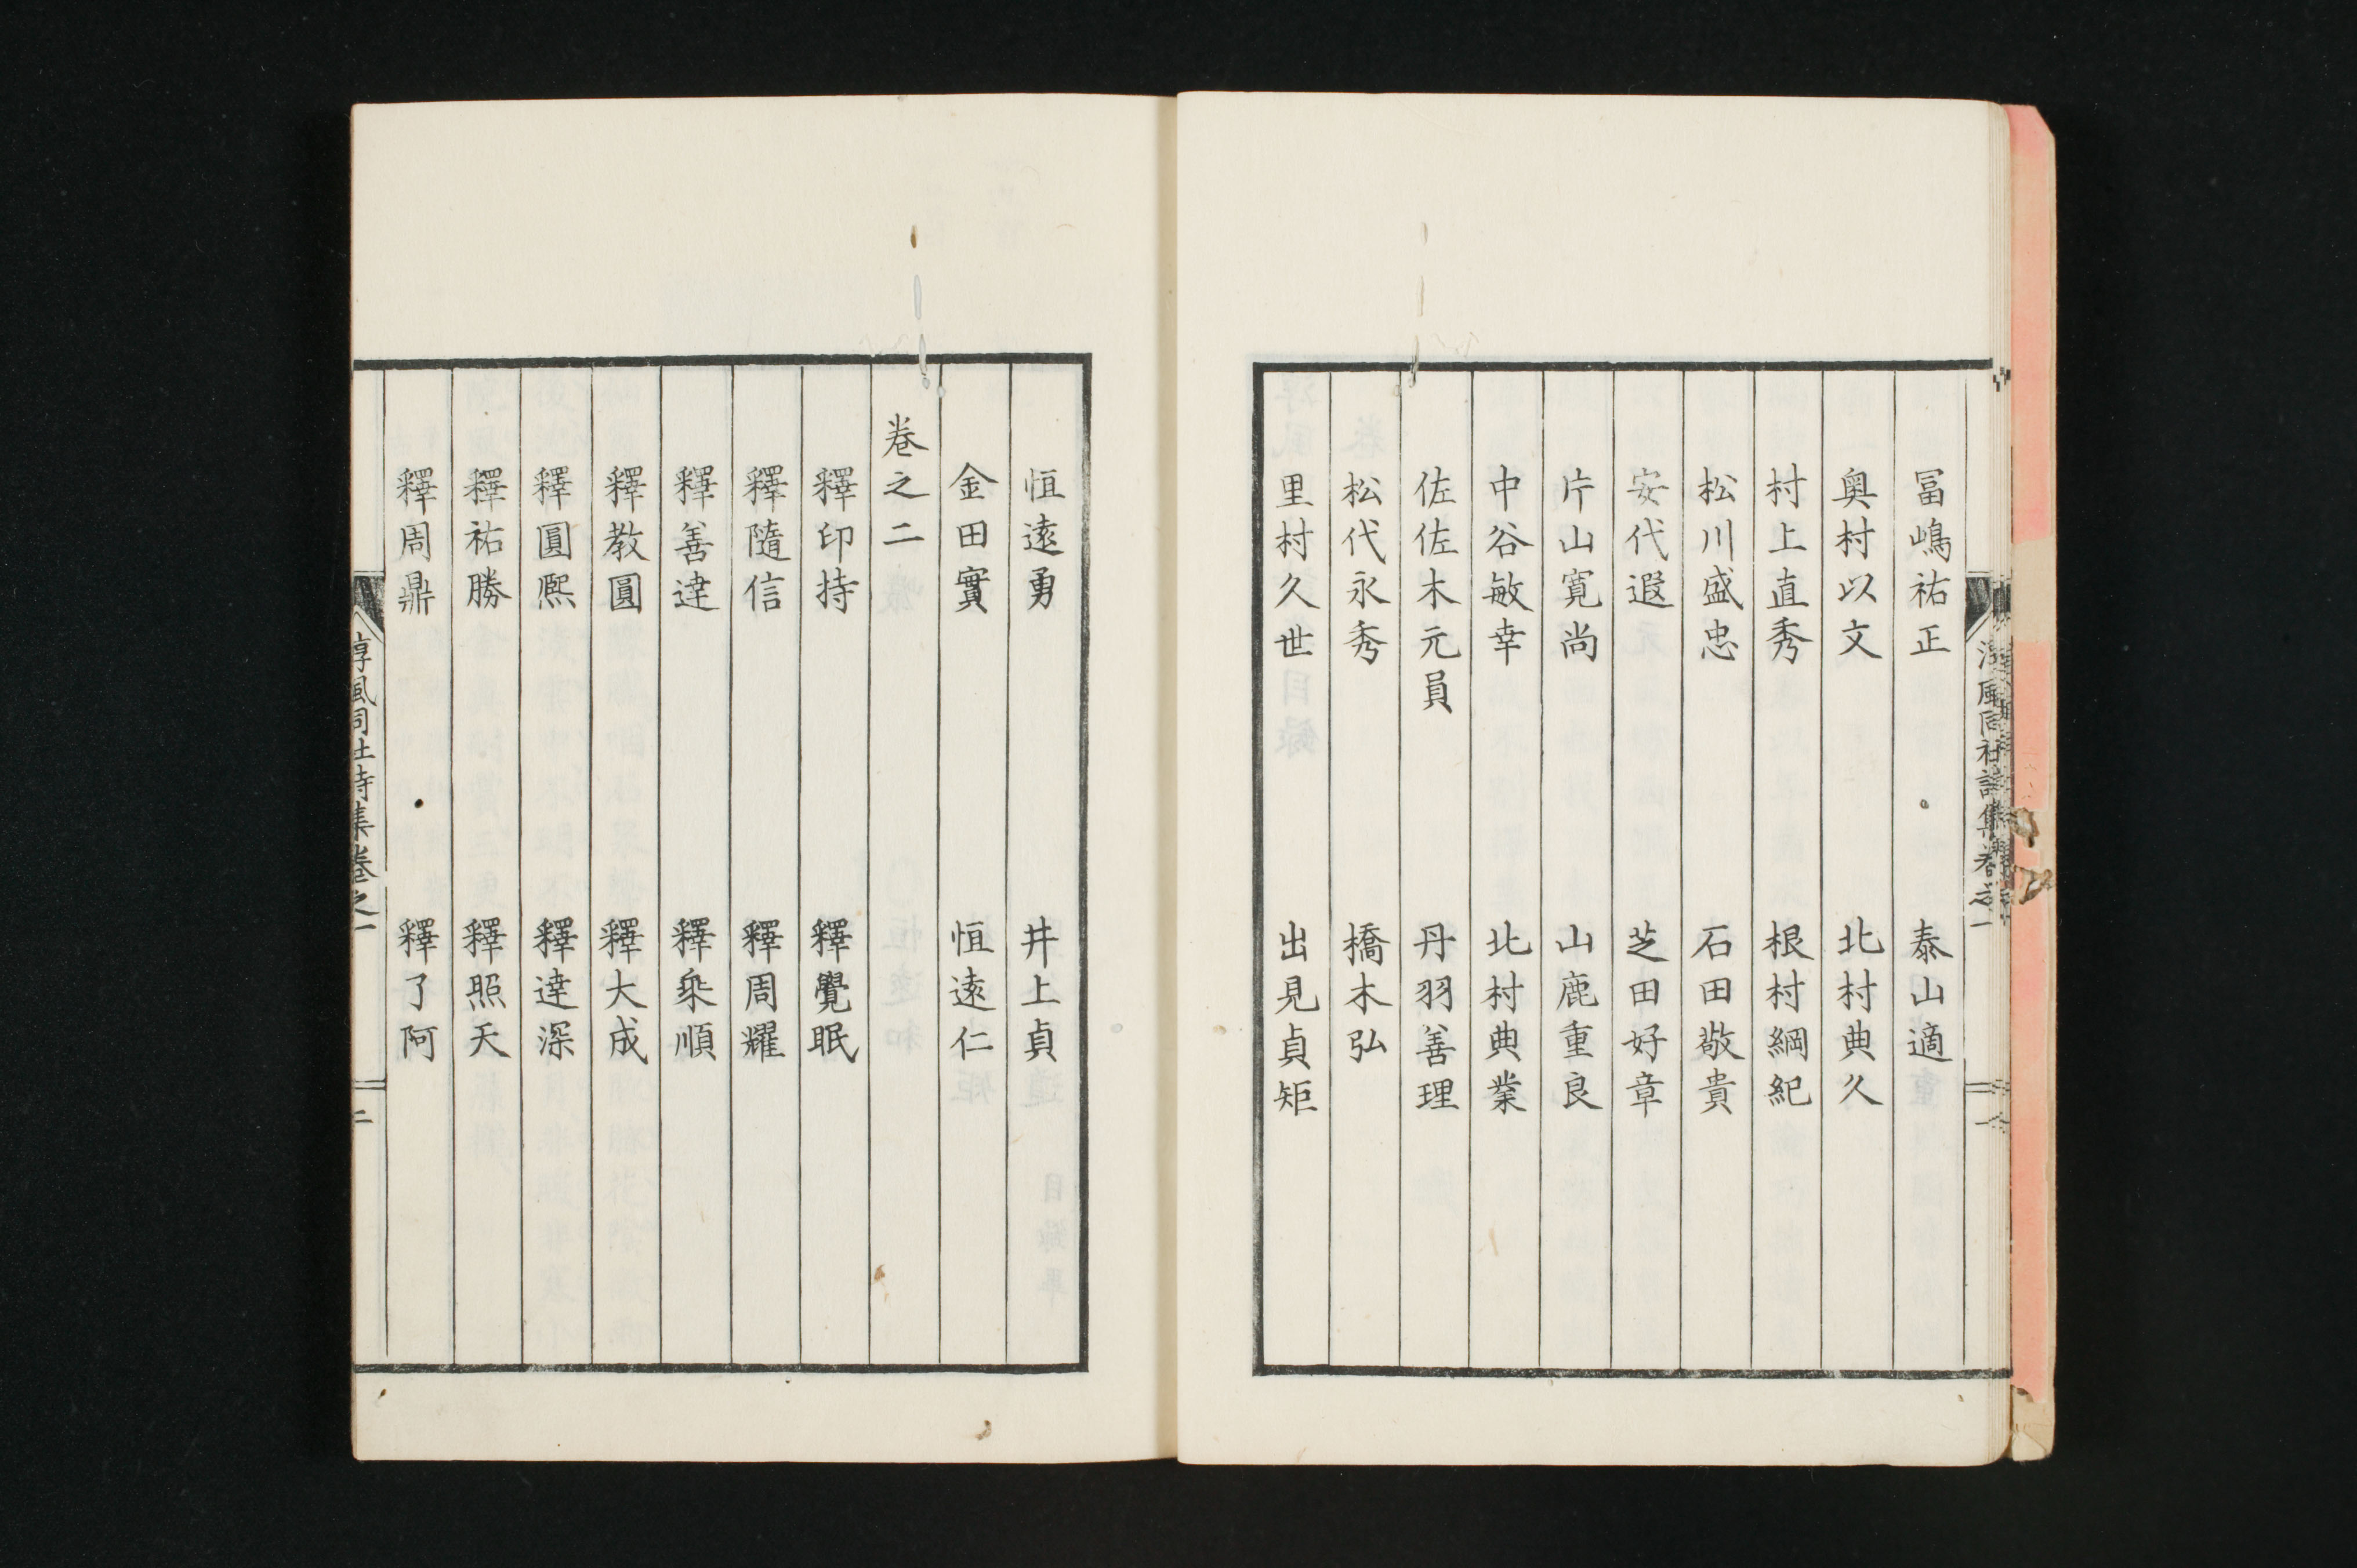 冨嶋祐正　泰山適
奥村以文　北村典久
村上直秀　根村綱紀
松川盛忠　石田敬貴
安代遐　芝田好章
片山寛尚　山鹿重良
中谷敏幸　北村典業
佐佐木元員　丹羽善理
松代永秀　橋本弘
里村久世　出見貞矩
淳風同社詩集卷之一
恒遠勇　井上貞
金田實　恒遠仁
卷之二
釋印持　釋覺眠
釋隨信　釋周耀
釋善達　釋乘順
釋教圓　釋大成
釋圓熈　釋達深
釋祐勝　釋照天
釋周鼎　釋了阿
淳風同社詩集卷之一　二